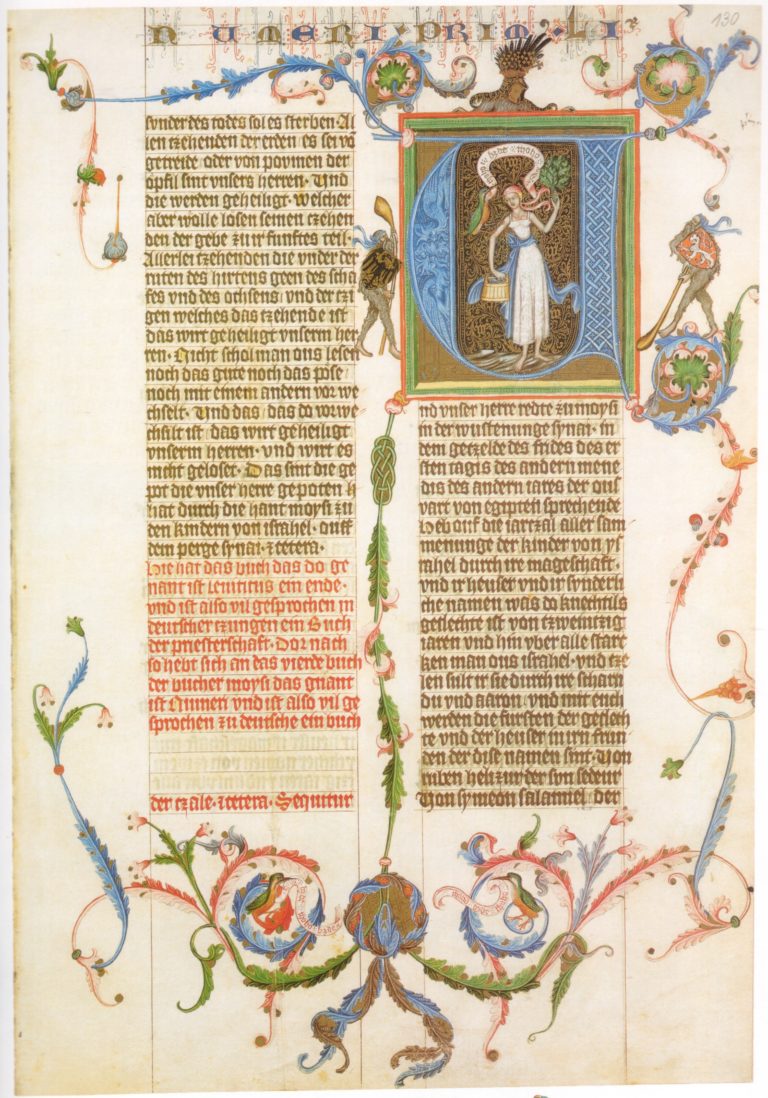 NUMERI · PRIM · LI
130
sunder des todes sol es sterben · Al
len tzehenden der erden es sei vo
getreide oder von povmen der
opfil sint vnsers herren · Und
die werden geheiligt · welcher
aber wolle losen seinen tzehen
den der gebe zu ir funftes teil ·
Allerlei tzehenden die vnder der
ruten des hirtens geen des scha
fes vnd des ochsens vnd der tzi
gen welches das tzehende ist
das wirt geheiligt vnserm her
ren · Nicht schol man ous lesen
noch das gute noch das pose
noch mit einem andern vor we
chselt · Und das das do vorwe
chselt ist das wirt geheiligt
vnserm herren · vnd wirt es
nicht geloset · Das sint die ge
pot die vnser herre gepoten
hat durch die hant moysi zu
den kindern von israhel · ouff
dem perge synai · zcetera ·
Hie hat das buch das do ge
nant ist leuiticus ein ende ·
vnd ist also vil gesprochen in
deutscher tzungen ein Buch
der priesterschaft · Dor nach
so hebt sich an das vierde buch
der bucher moysi das gnant
ist Numeri vnd ist also vil ge
sprochen zu deutsche ein buch
der tzale · zcetera · Sequitur
nd vnser herre redte zu moysi
in der wustenunge synai · in
dem getzelde des frides des er
sten tagis des andern mene
dis des andern iares der ouz
vart von egipten sprechende
Heb ouf die iartzal aller sam
menunge der kinder von ys
rahel durch ire mageschaft
vnd ir heuser vnd ir synderli
che namen was do knechtils
geslechte ist von tzweintzig
iaren vnd hin vber alle star
ken man ous israhel · vnd tze
len sult ir sie durch ire scharn
du vnd aaron · vnd mit euch
werden die fursten der geslech
te vnd der heuser in irn frun
den der dise namen sint · Von
ruben helizur der son sedeur
Von symeon salamiel der